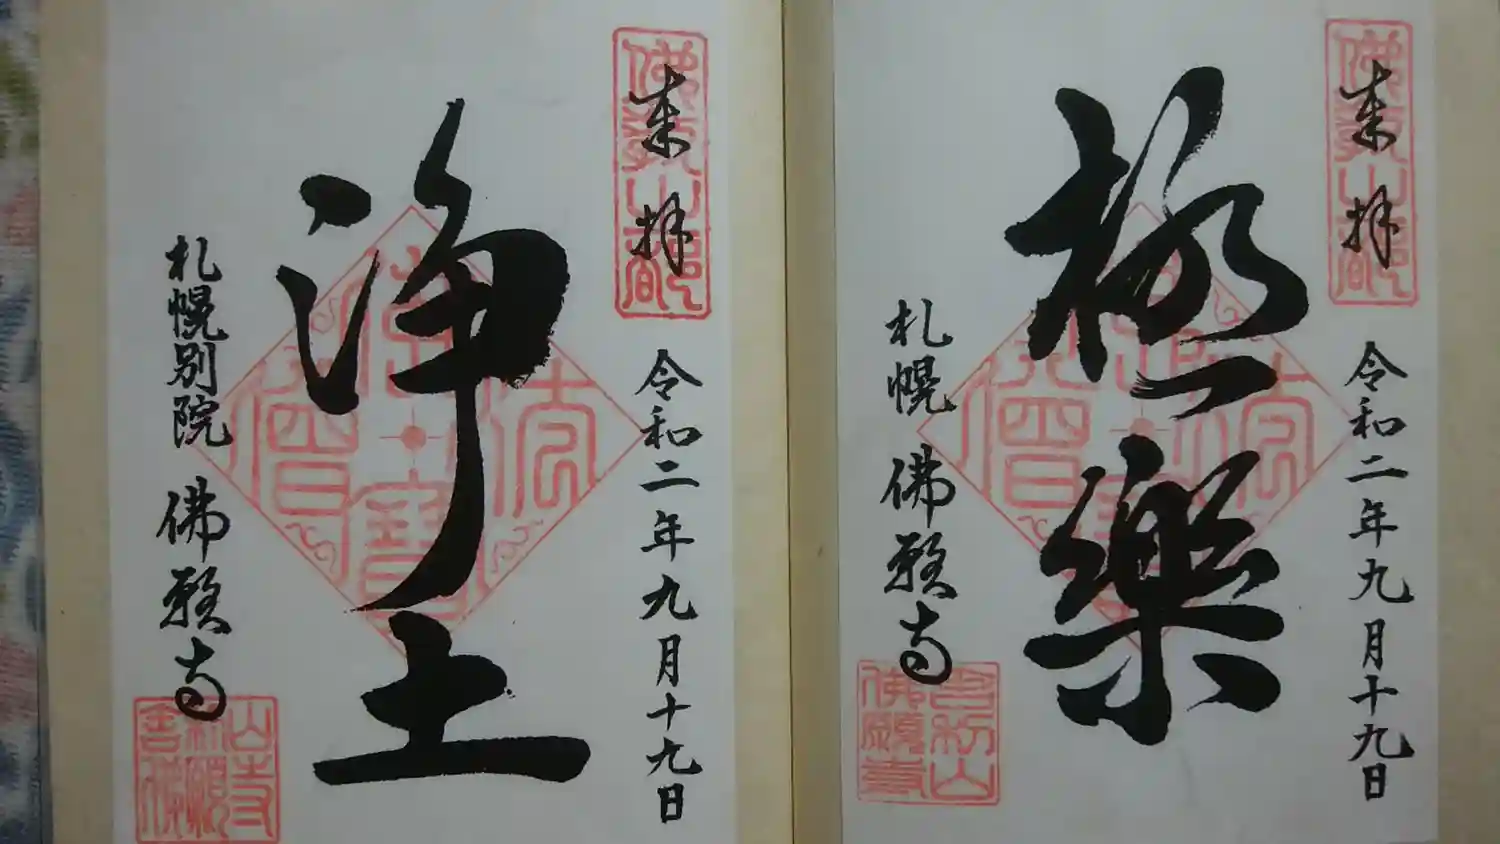 来拝
令和二年九月十九日
極樂
札幌 佛願寺
来拝
令和二年九月十九日
浄土
札幌別院 佛願寺